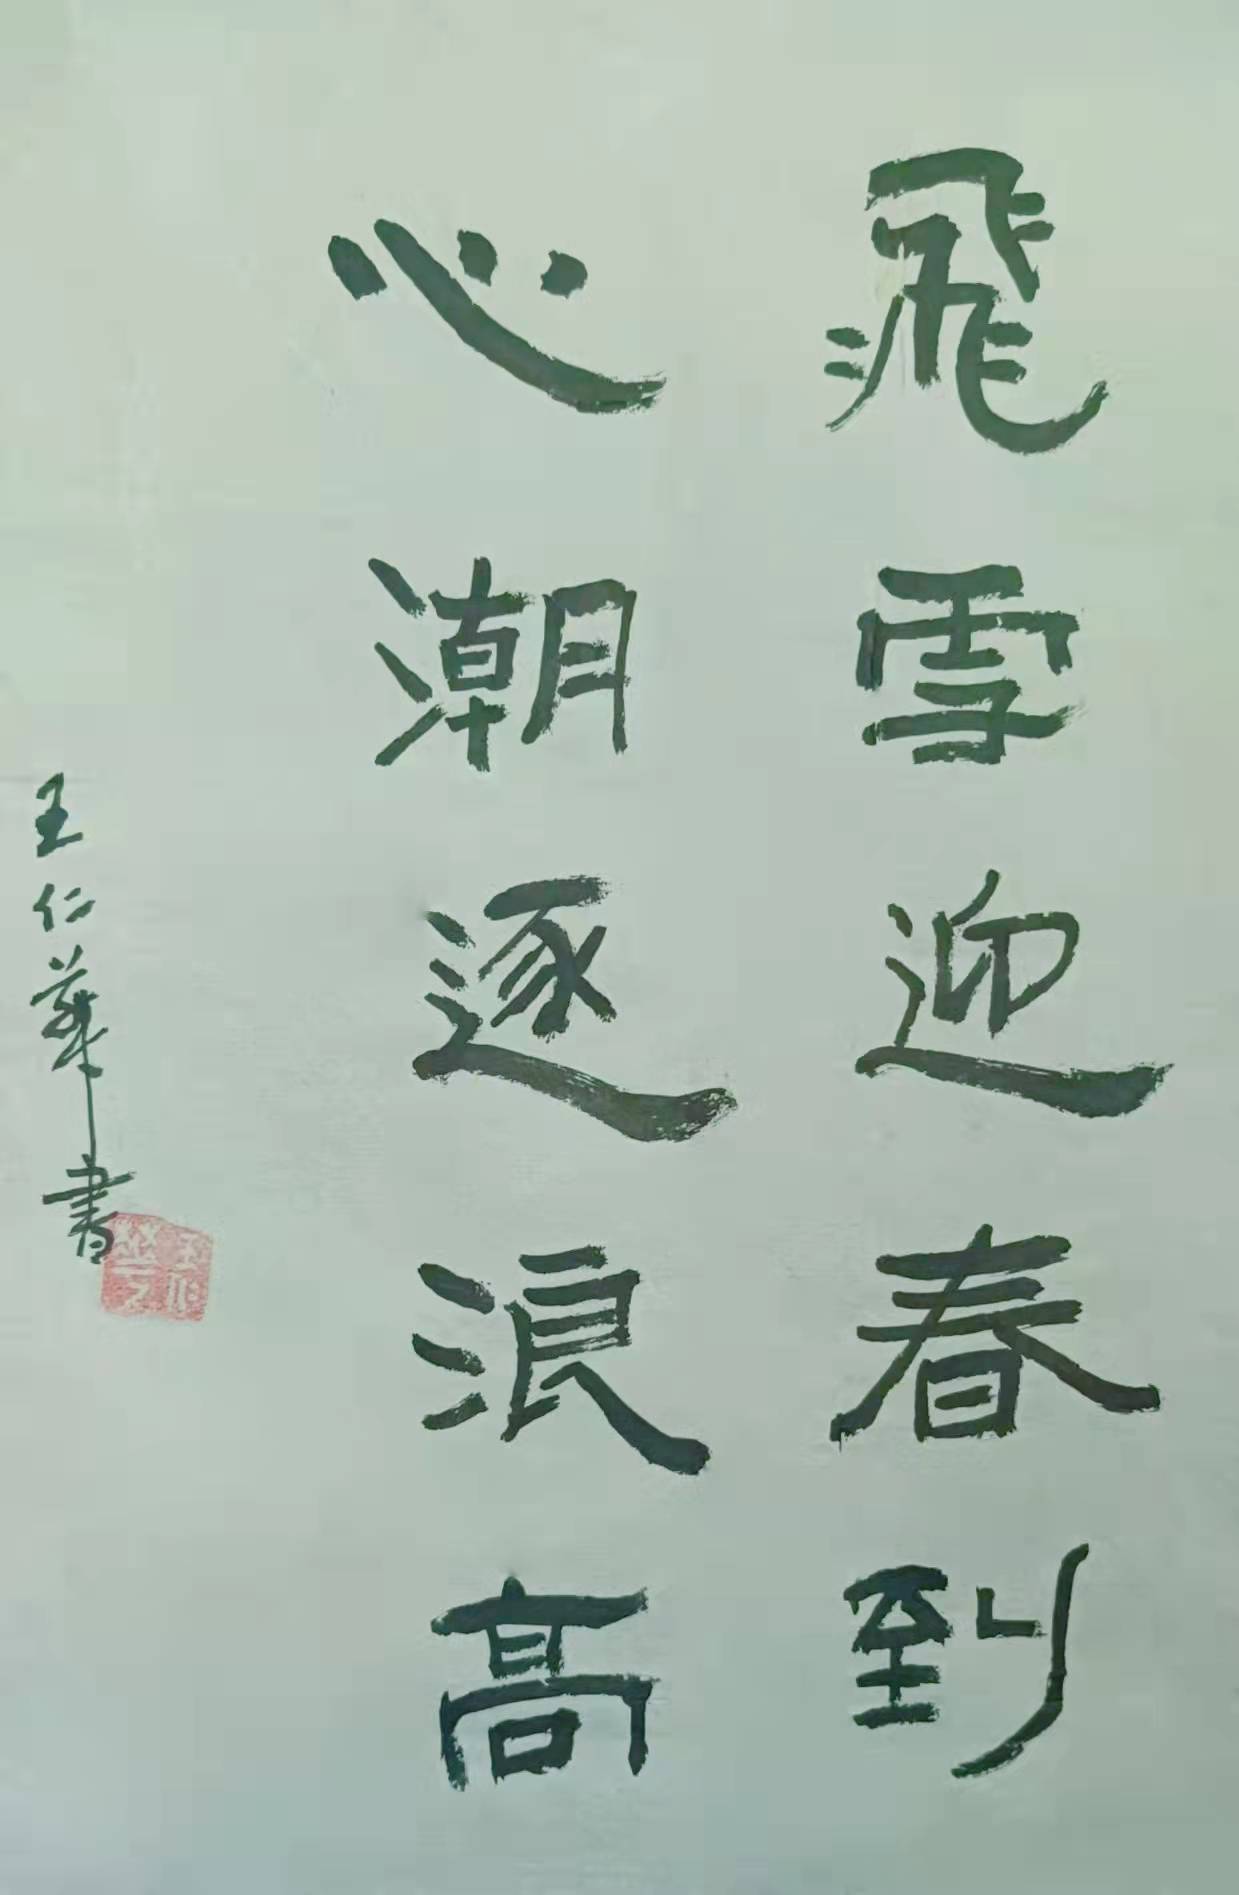 飛雪迎春到
心潮逐浪高
王仁華書